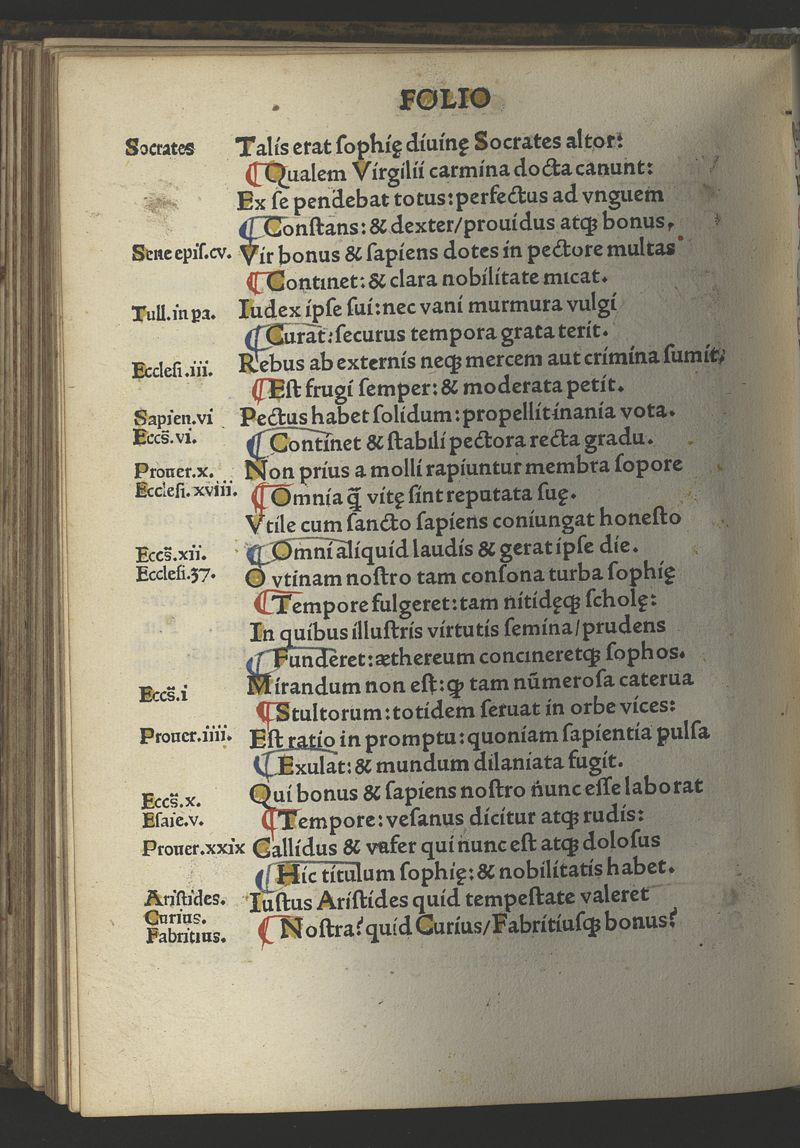 FOLIO
Socrates Talis erat ſophię diuinę Socrates altor:
¶Qualem Virgilii carmina docta canunt:
Ex ſe pendebat totus: perfectus ad vnguem
¶Conſtans: & dexter/prouidus atqꝫ bonus,
Sene epiſ.cv. Vir bonus & ſapiens dotes in pectore multas
¶Continet: & clara nobilitate micat.
Tull.in pa. Iudex ipſe ſui: nec vani murmura vulgi
¶Curat: ſecurus tempora grata terit.
Eccleſi.iii. Rebus ab externis neqꝫ mercem aut crimina ſumit:
¶Eſt frugi ſemper: & moderata petit.
Sapien.vi Pectus habet ſolidum: propellit inania vota.
Eccs̄.vi. ¶Continet & ſtabili pectora recta gradu.
Prouer.x. Non prius a molli rapiuntur membra ſopore
Eccleſi.xviii. ¶Omnia q̄̃ vitę ſint reputata ſuę.
Vtile cum ſancto ſapiens coniungat honeſto
Eccs̄.xii. ¶Omni aliquid laudis & gerat ipſe die.
Eccleſi.37. O vtinam noſtro tam conſona turba ſophię
¶Tempore fulgeret: tam nitidęqꝫ ſcholę:
In quibus illuſtris virtutis ſemina/prudens
¶Funderet: æthereum concineretqꝫ ſophos.
Eccs̄.i Mirandum non eſt: ꝙ tam numeroſa caterua
¶Stultorum: totidem ſeruat in orbe vices:
Prouer.iiii. Eſt ratio in promptu: quoniam ſapientia pulſa
¶Exulat: & mundum dilaniata fugit.
Eccs̄.x. Qui bonus & ſapiens noſtro nunc eſſe laborat
Eſaie.v. ¶Tempore: veſanus dicitur atqꝫ rudis:
Prouer.xxix Callidus & vafer qui nunc eſt atqꝫ doloſus
¶Hic titulum ſophię: & nobilitatis habet.
Ariſtides. Iuſtus Ariſtides quid tempeſtate valeret
Curius. ¶Noſtra? quid Curius/Fabritiuſqꝫ bonus?
Fabritius.